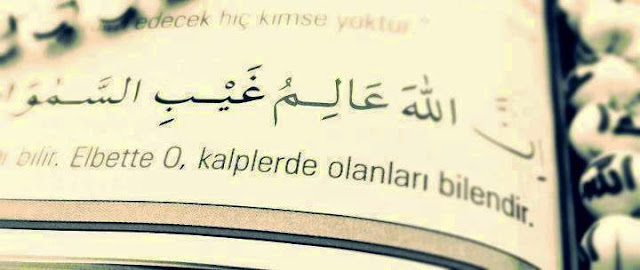 edecek hiç kimse yoktur."
اللّٰهَ عَالِمُ غَيْبِ السَّمٰوَا
bilir. Elbette O, kalplerde olanları bilendir.
الله